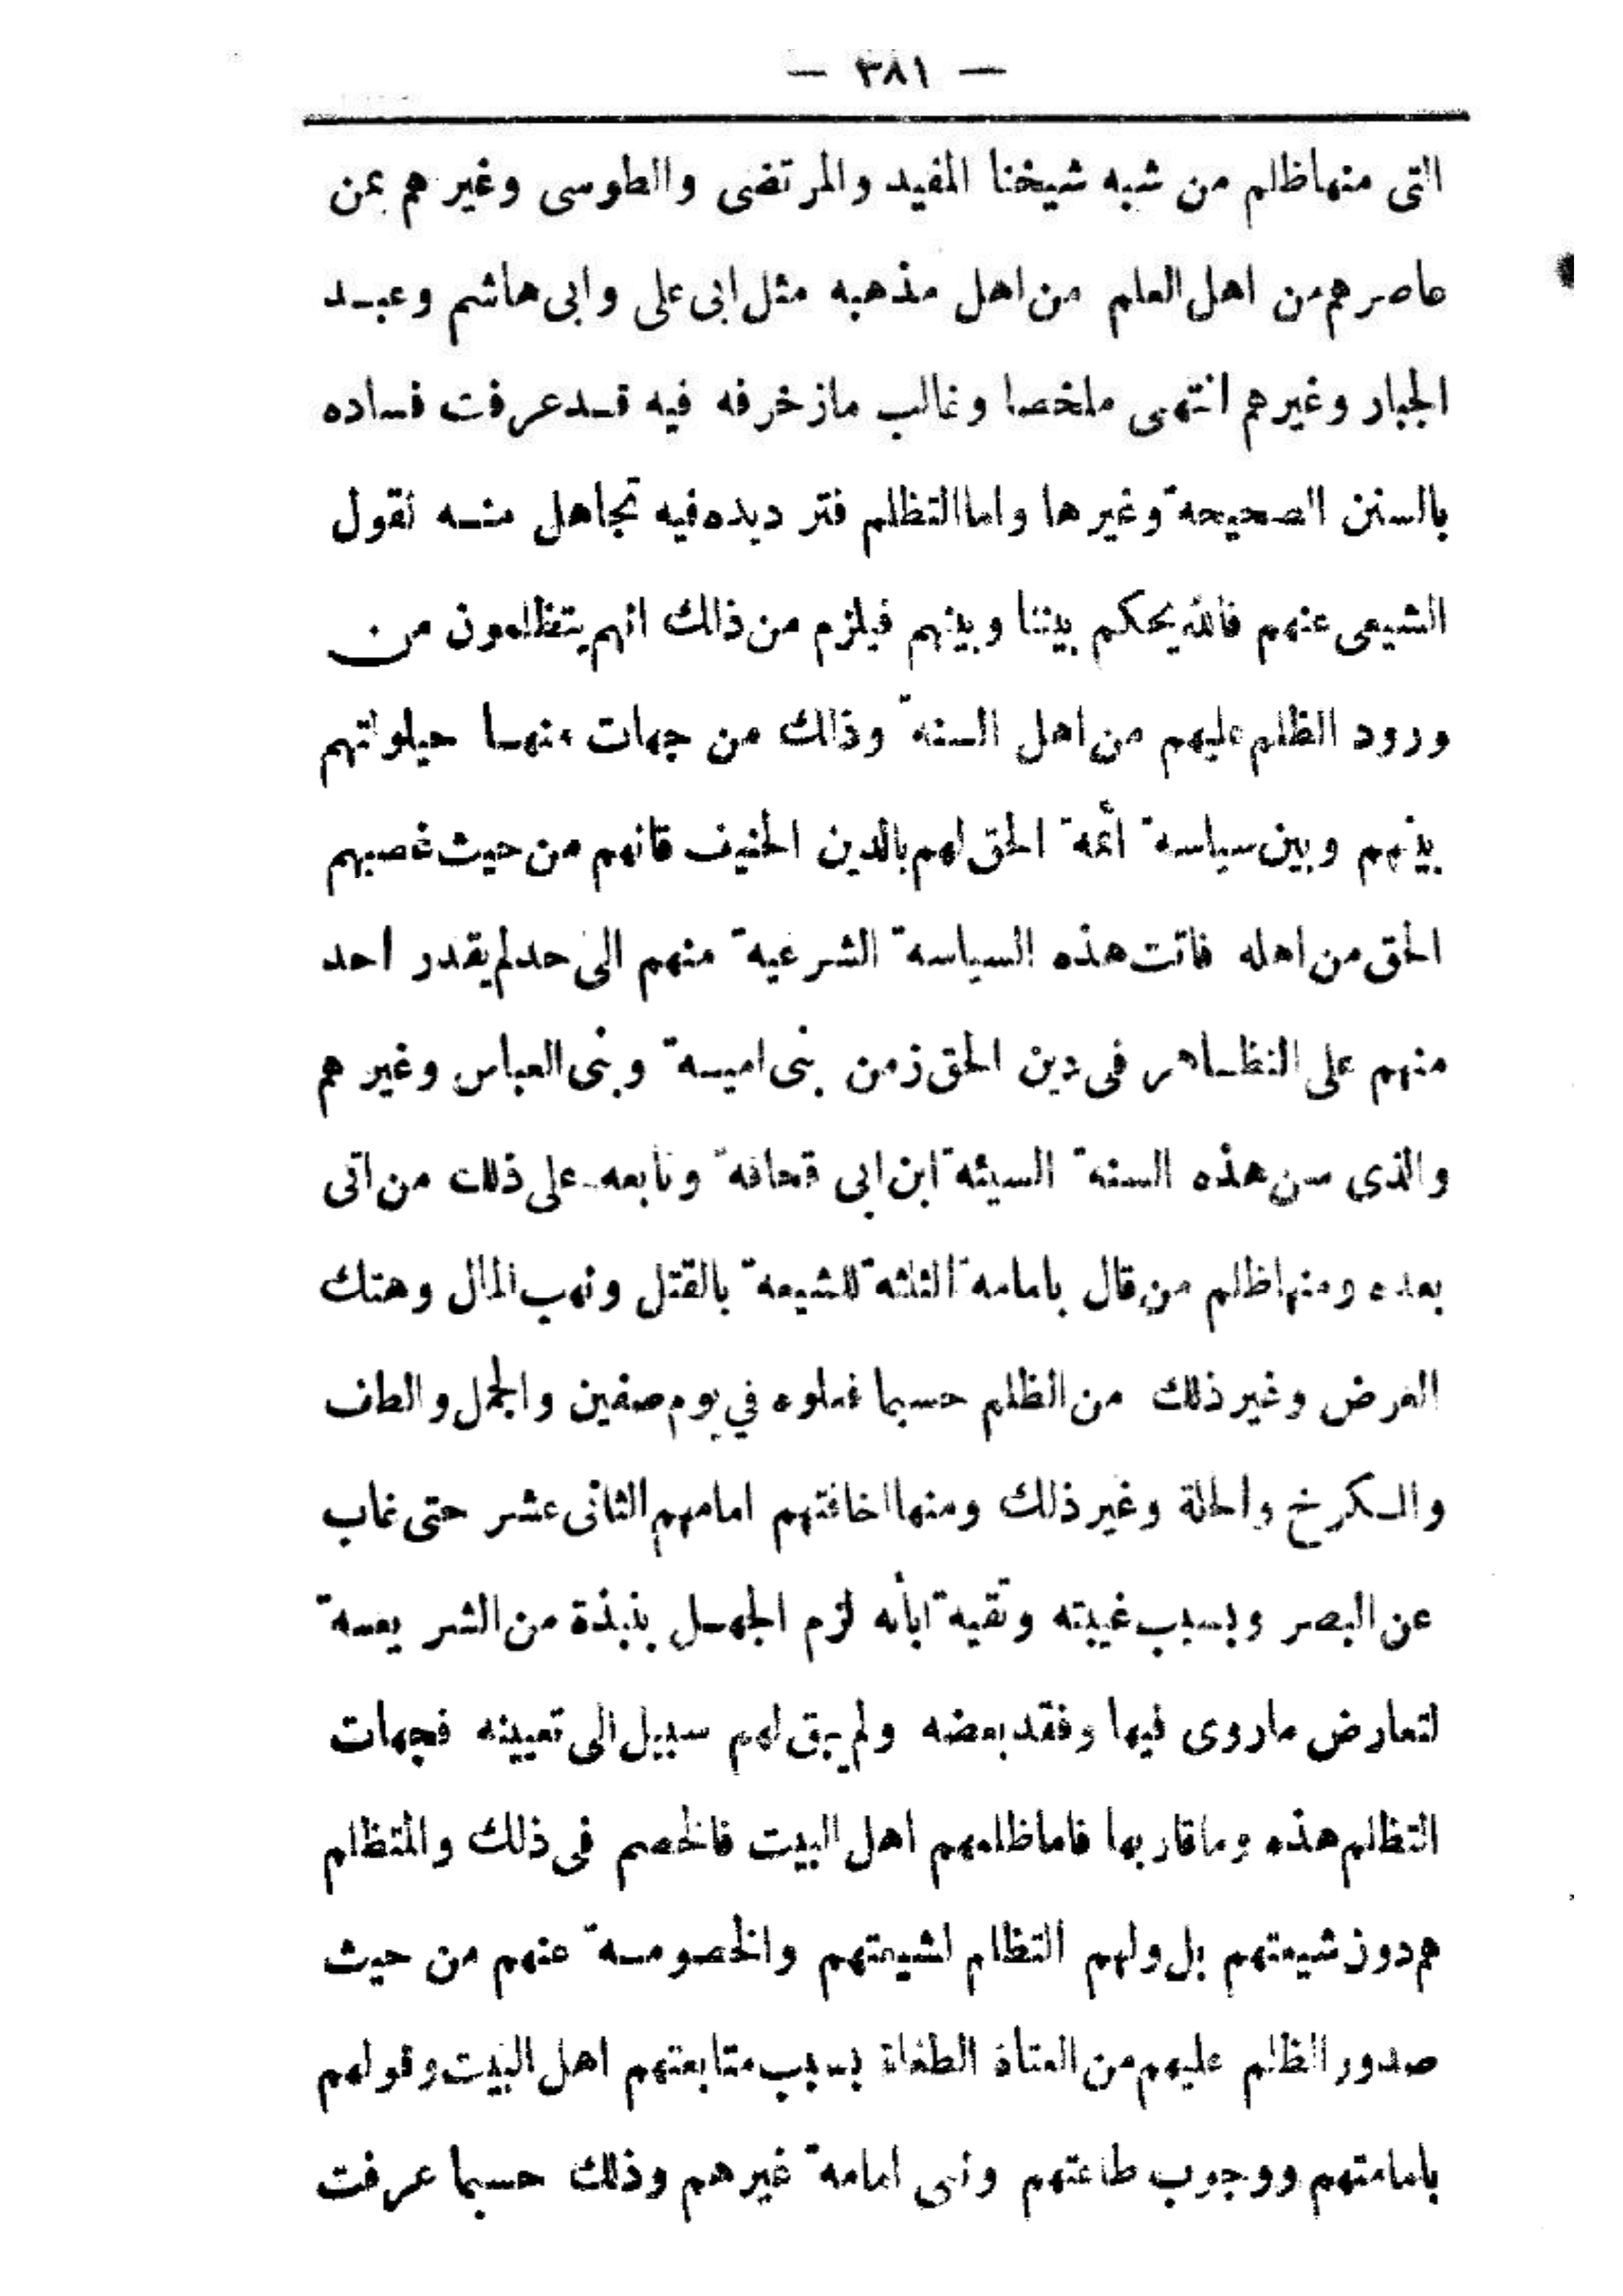 — ٣٨١ —
التى منها ظلم من شبه شيخنا المفيد والمرتضى والطوسى وغيرهم ممن
عاصرهم من اهل العلم من اهل مذهبه مثل ابى على وابى هاشم وعبد
الجبار وغيرهم انتهى ملخصا وغالب مازخرفه فيه قد عرفت فساده
بالسنن الصحيحة وغيرها واما التظلم فترديده فيه تجاهل منه نقول
الشيعى عنهم فالله يحكم بيننا وبينهم فيلزم من ذالك انهم يتظلمون من
ورود الظلم عليهم من اهل السنة وذالك من جهات منها حيلولتهم
بينهم وبين سياسة أئمة الحق لهم بالدين الحنيف فانهم من حيث غصبهم
الحق من اهله فاتت هذه السياسة الشرعية منهم الى حد لم يقدر احد
منهم على التظاهر فى دين الحق زمن بنى امية وبنى العباس وغيرهم
والذى سن هذه السنة السيئة ابن ابى قحافة وتابعه على ذلك من اتى
بعده ومنها ظلم من قال بامامة الثلثة للشيعة بالقتل ونهب المال وهتك
العرض وغير ذلك من الظلم حسبما فعلوه في يوم صفين والجمل والطف
والكرخ والحلة وغير ذلك ومنها اخافتهم امامهم الثانى عشر حتى غاب
عن البصر وبسبب غيبته وتقية ابأنه لزم الجهل بنبذة من الشريعة
لتعارض ماروى فيها وفقد بعضه ولم يبق لهم سبيل الى تعيينه فجهات
التظلم هذه وماقاربها فاما ظلمهم اهل البيت فالخصم فى ذلك والمتظلم
هم دون شيعتهم بل ولهم التظلم لشيعتهم والخصومة عنهم من حيث
صدور الظلم عليهم من العتاة الطغاة بسبب متابعتهم اهل البيت وقولهم
بامامتهم ووجوب طاعتهم ونفى امامة غيرهم وذلك حسبما عرفت